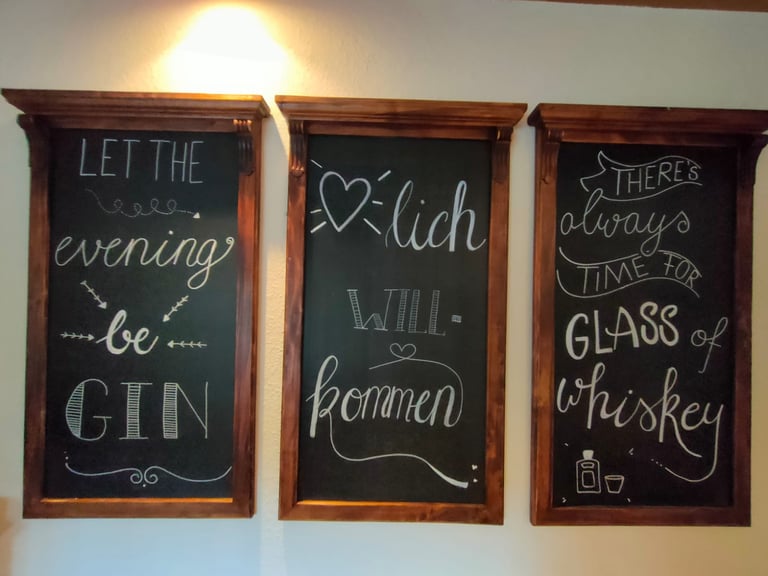 LET THE
evening
be
GIN
lich
WILL-
kommen
THERE'S
always
TIME FOR
GLASS of
whiskey